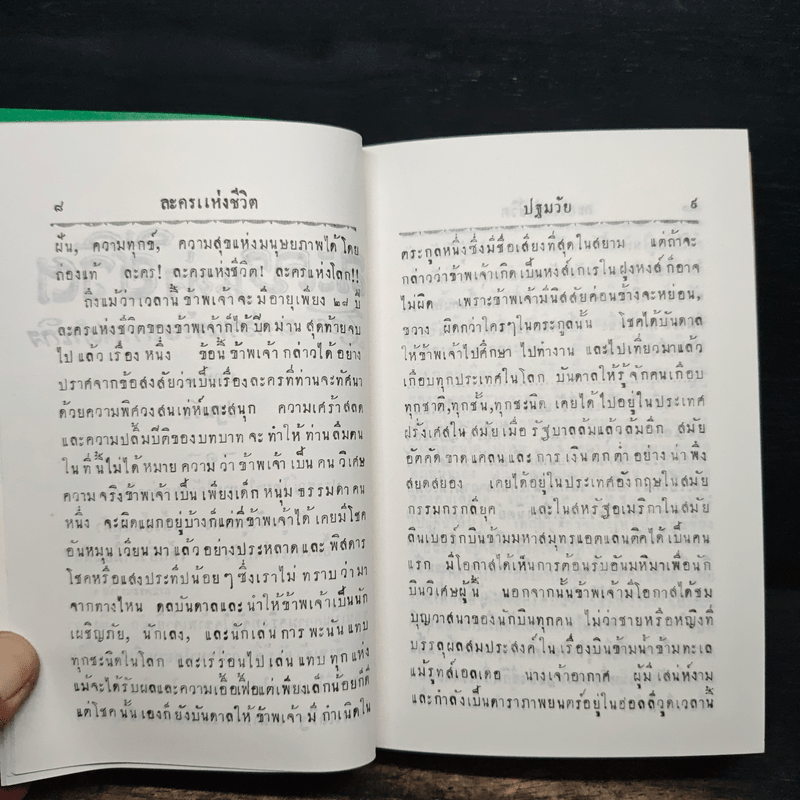 ๘ ละครแห่งชีวิต
ฝัน, ความทุกข์, ความสุขแห่งมนุษยภาพได้ โดย
ถ่องแท้ ละคร! ละครแห่งชีวิต! ละครแห่งโลก!!
ถึงแม้ว่า เวลานี้ ข้าพเจ้า จะ มีอายุเพียง ๒๘ ปี
ละครแห่งชีวิตของ ข้าพเจ้าก็ได้ ปิด ม่าน สุดท้ายจบ
ไป แล้ว เรื่อง หนึ่ง ข้อนี้ ข้าพเจ้า กล่าวได้ อย่าง
ปราศจากข้อสงสัยว่าเป็นเรื่องละครที่ท่านจะทัศนา
ด้วยความพิศวงสนเท่ห์และสนุก ความเศร้าสลด
และความปลื้มปีติของบทบาท จะ ทำให้ ท่านลืมตน
ใน ที่นี้ไม่ได้ หมาย ความ ว่า ข้าพเจ้า เป็น คน วิเศษ
ความ จริงข้าพเจ้า เป็น เพียงเด็ก หนุ่ม ธรรมดา คน
หนึ่ง จะผิดแผกอยู่บ้างก็แต่ที่ข้าพเจ้าได้ เคยมีโชค
อันหมุน เวียน มา แล้ว อย่างประหลาด และ พิสดาร
โชคหรือแสงประทีปน้อย ๆ ซึ่งเราไม่ ทราบ ว่า มา
จากทางไหน ดลบันดาลและ นำให้ ข้าพเจ้าเป็นนัก
เผชิญภัย, นักเลง, และนักเล่น การ พะนัน แทบ
ทุกชะนิดในโลก และเร่ร่อนไป เล่น แทบ ทุก แห่ง
แม้จะได้รับผลและความเอื้อเฟื้อแต่เพียงเล็กน้อยก็ดี
แต่โชค นั้น เองก็ ยังบันดาลให้ ข้าพเจ้า มี กำเนิดใน
ปฐมวัย ๙
ตระกูลหนึ่งซึ่งมีชื่อเสียงที่สุดในสยาม แต่ถ้าจะ
กล่าวว่าข้าพเจ้าเกิด เป็นหงส์เกเรใน ฝูงหงส์ ก็อาจ
ไม่ผิด เพราะข้าพเจ้ามีนิสสัยค่อนข้างจะหย่อน,
ขวาง ผิดกว่าใครๆในตระกูลนั้น โชคได้บันดาล
ให้ข้าพเจ้าไปศึกษา ไปทำงาน และไปเที่ยวมาแล้ว
เกือบทุกประเทศในโลก บันดาลให้รู้ จักคนเกือบ
ทุกชาติ,ทุกชั้น,ทุกชะนิด เคยได้ ไปอยู่ ในประเทศ
ฝรั่งเศสใน สมัยเมื่อ รัฐบาลล้มแล้วล้มอีก สมัย
อัตคัด ขาด แคลน และ การ เงิน ตก ต่ำ อย่าง น่า พึง
สยดสยอง เคยได้อยู่ในประเทศอังกฤษในสมัย
กรรมกรกลียุค และในสหรัฐอเมริกาในสมัย
ลินเบอร์กบินข้ามมหาสมุทรแอตแลนติคได้ เป็นคน
แรก มีโอกาสได้เห็นการต้อนรับอันมหิมาเพื่อนัก
บินวิเศษผู้นี้ นอกจากนั้นข้าพเจ้ามีโอกาสได้ชม
บุญวาสนาของนักบินทุกคน ไม่ว่าชายหรือหญิงที่
บรรลุผลสมประสงค์ใน เรื่องบินข้ามน้ำข้ามทะเล
แม้รุทส์เอลเดอ นางเจ้าอากาศ ผู้มีเสน่ห์งาม
และกำลังเป็นดาราภาพยนตร์อยู่ในฮอลลีวูดเวลานี้